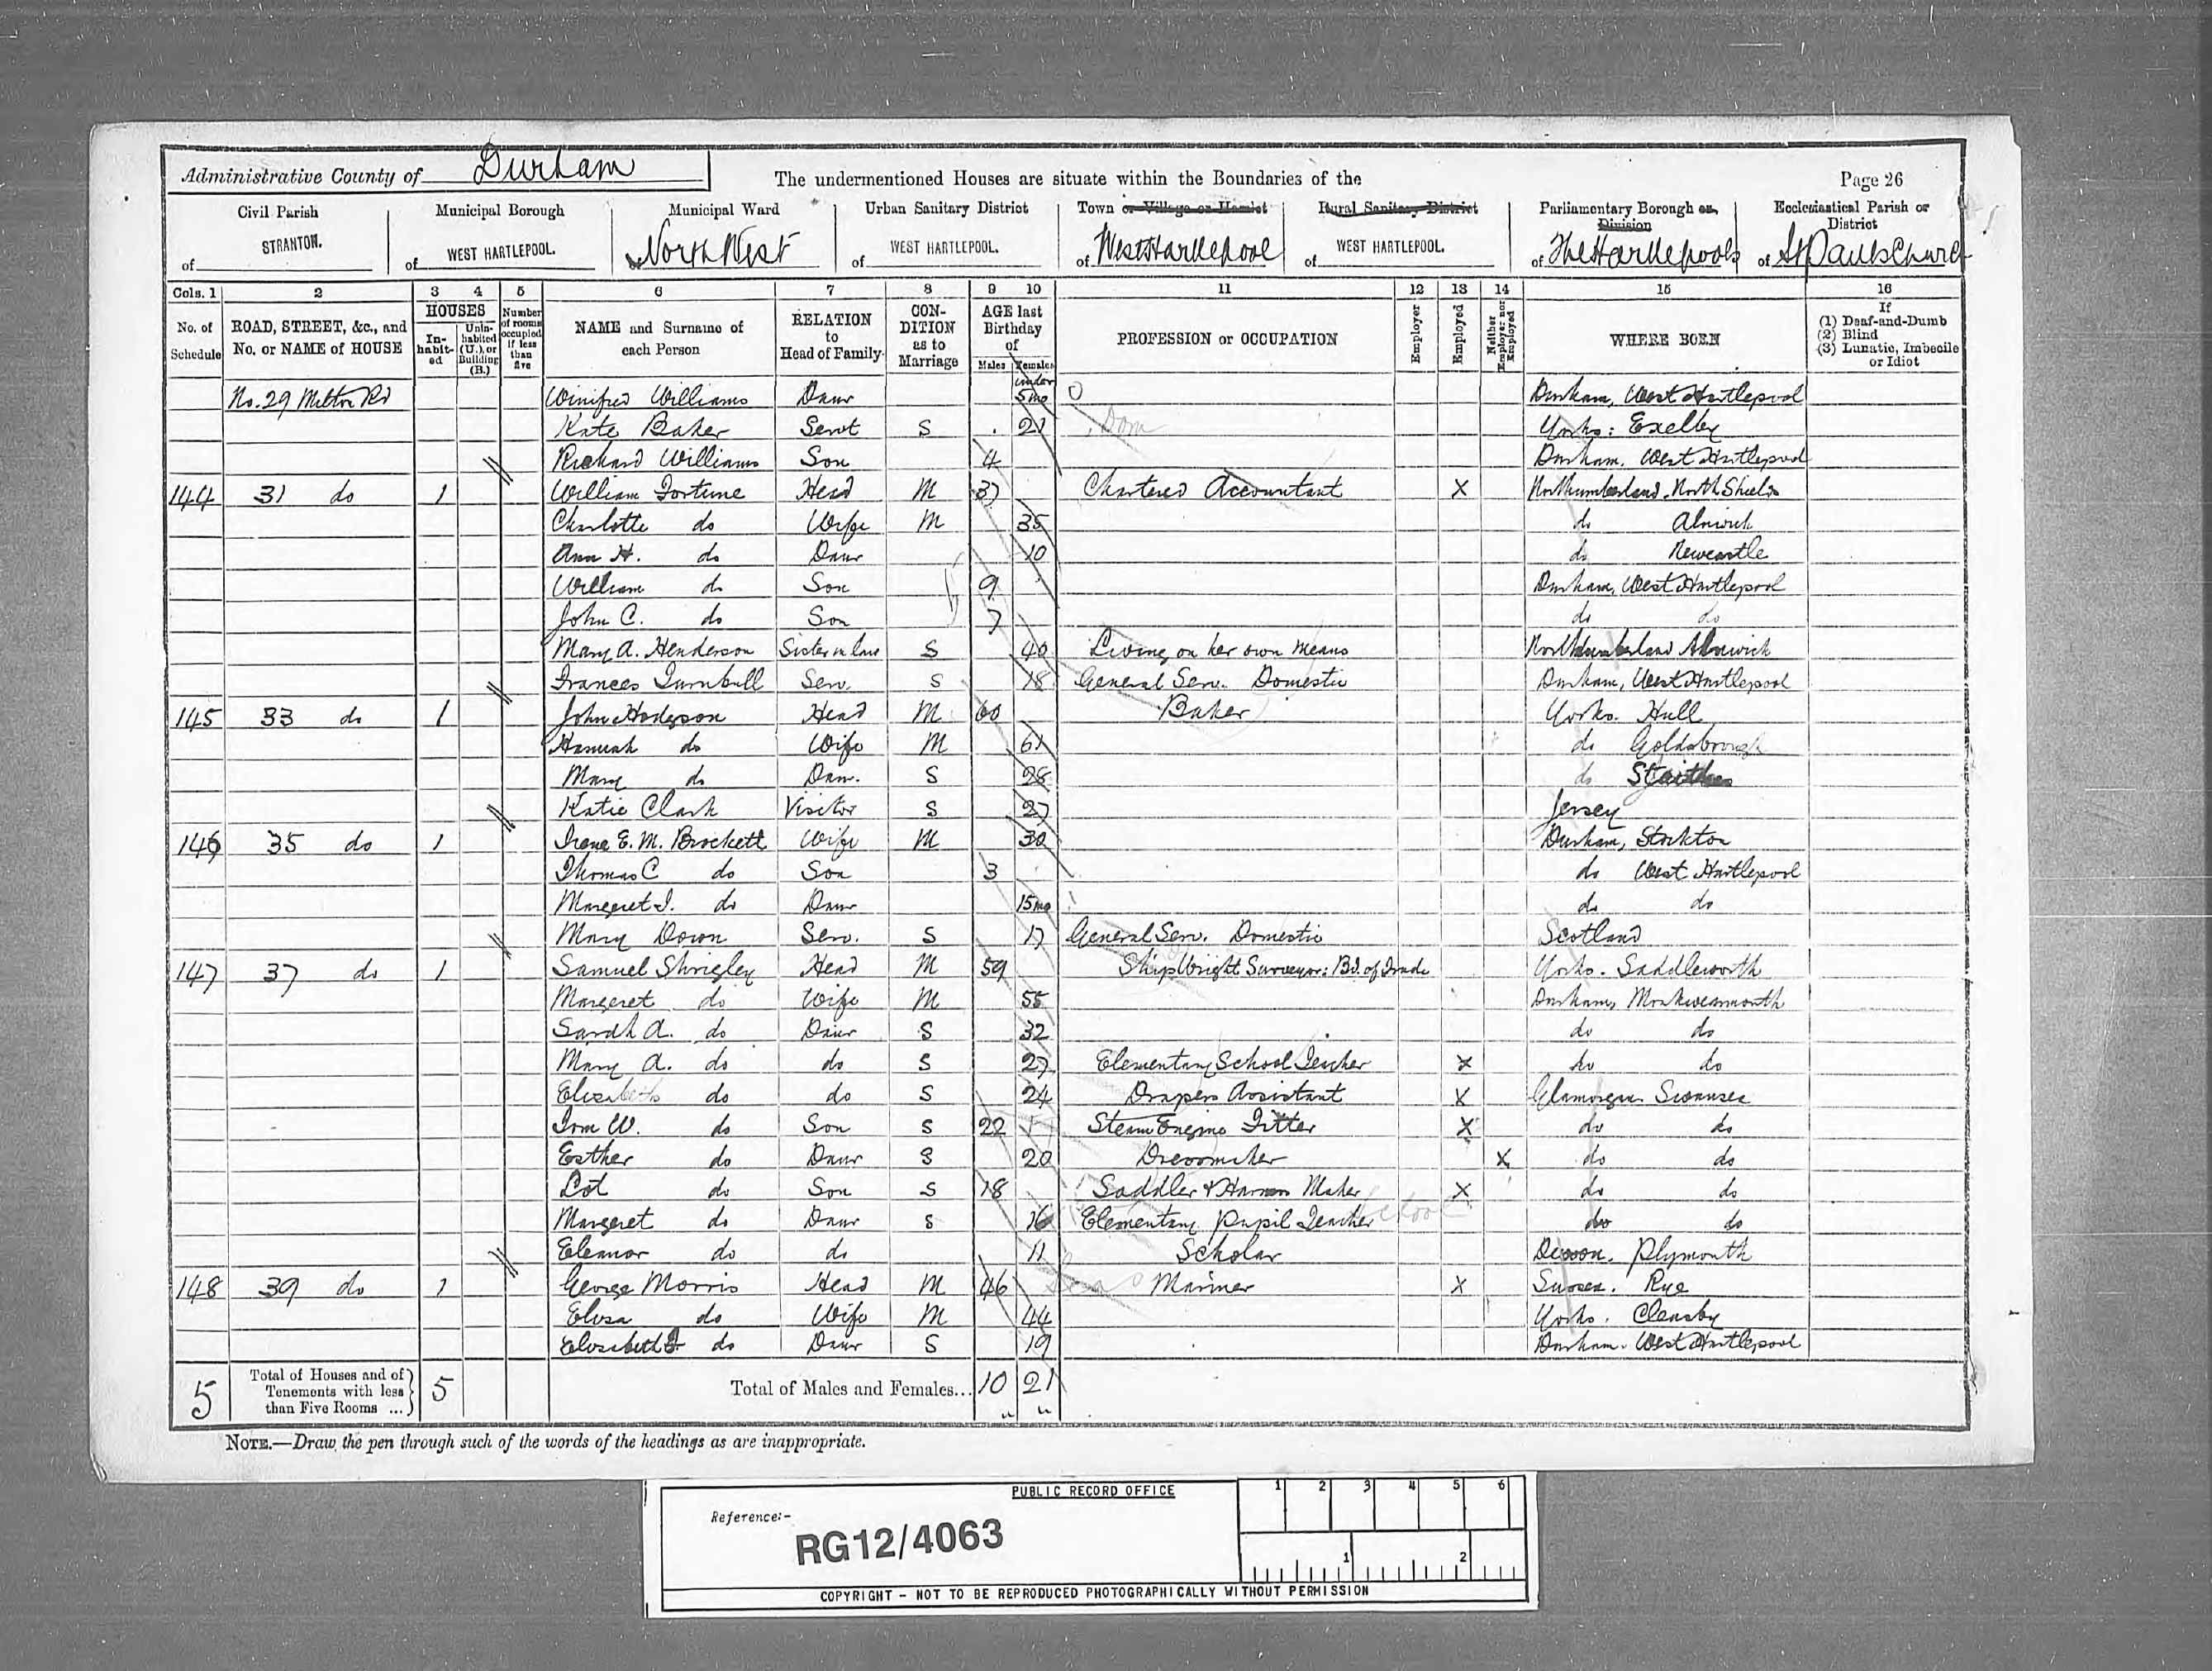 Administrative County of Durham
The undermentioned Houses are situate within the Boundaries of the
Page 26
Civil Parish of STRANTON.
Municipal Borough of WEST HARTLEPOOL.
Municipal Ward of North West
Urban Sanitary District of WEST HARTLEPOOL.
Town or Village or Hamlet of West Hartlepool
Rural Sanitary District of WEST HARTLEPOOL.
Parliamentary Borough or Division of The Hartlepools
Ecclesiastical Parish or District of St Pauls Church
Cols. 1 2 3 4 5 6 7 8 9 10 11 12 13 14 15 16
No. of Schedule
ROAD, STREET, &c., and No. or NAME of HOUSE
HOUSES
In-habit-ed
Unin-habited (U.), or Building (B.)
Number of rooms occupied if less than five
NAME and Surname of each Person
RELATION to Head of Family
CON-DITION as to Marriage
AGE last Birthday of
Males Females
PROFESSION or OCCUPATION
Employer
Employed
Neither Employer nor Employed
WHERE BORN
If (1) Deaf-and-Dumb (2) Blind (3) Lunatic, Imbecile or Idiot
No. 29 Milton Rd Winifred Williams Daur under 5 mo Durham, West Hartlepool
Kate Baker Servt S 21 Dom Yorks: Exelby
Richard Williams Son 4 Durham. West Hartlepool
144 31 do 1 William Fortune Head M 37 Chartered Accountant X Northumberland. North Shields
Charlotte do Wife M 35 do Alnwick
Ann H. do Daur 10 do Newcastle
William do Son 9 Durham, West Hartlepool
John C. do Son 7 do do
Mary A. Henderson Sister in law S 40 Living on her own Means Northumberland Alnwick
Frances Turnbull Serv. S 18 General Serv. Domestic Durham, West Hartlepool
145 33 do 1 John Hodgson Head M 60 Baker Yorks. Hull
Hannah do Wife M 61 do Goldsbrough
Mary do Daur. S 28 do Staithes
Katie Clark Visitor S 27 Jersey
146 35 do 1 Irene E. M. Brockett Wife M 30 Durham, Stockton
Thomas C do Son 3 do West Hartlepool
Margaret I. do Daur 15mo do do
Mary Down Serv. S 17 General Serv. Domestic Scotland
147 37 do 1 Samuel Shrigley Head M 59 Ship Wright Surveyor: Bd. of Trade Yorks. Saddleworth
Margeret do Wife M 55 Durham, Monkwearmouth
Sarah A. do Daur S 32 do do
Mary A. do do S 27 Elementary School Teacher X do do
Elizabeth do do S 24 Drapers Assistant X Glamorgan Swansea
Tom W. do Son S 22 Steam Engine Fitter X do do
Esther do Daur S 20 Dressmaker X do do
Lot do Son S 18 Saddler & Harness Maker X do do
Margeret do Daur S 16 Elementary Pupil Teacher School do do
Eleanor do do 11 Scholar Devon. Plymouth
148 39 do 1 George Morris Head M 46 Mariner X Sussex. Rye
Eliza do Wife M 44 Yorks. Cleasby
Elizabeth J. do Daur S 19 Durham. West Hartlepool
5 Total of Houses and of Tenements with less than Five Rooms ... 5 Total of Males and Females... 10 21
NOTE.—Draw the pen through such of the words of the headings as are inappropriate.
PUBLIC RECORD OFFICE
1 2 3 4 5 6
Reference:-
RG12/4063
1 2
COPYRIGHT - NOT TO BE REPRODUCED PHOTOGRAPHICALLY WITHOUT PERMISSION